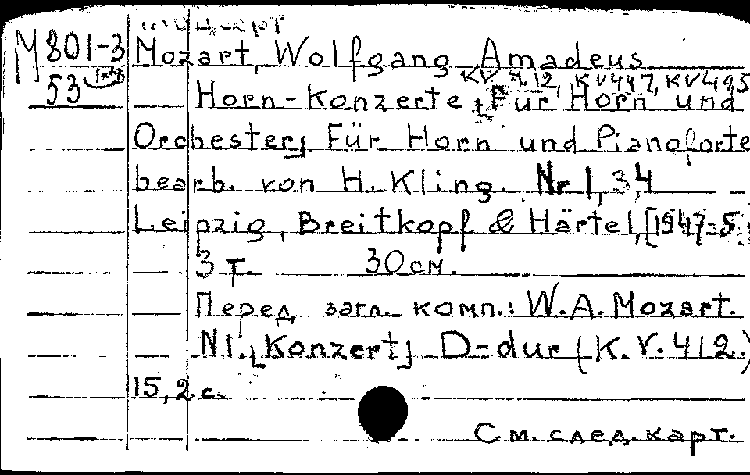 М801-3 Mozart, Wolfgang Amadeus
53 KV 412, KV447, KV495
Horn-Konzerte [Für Horn und
Orchester] Für Horn und Pianoforte
bearb. von H. Kling. Nr 1,3,4
Leipzig, Breitkopf & Härtel, [1947-5
3 т. 30 см.
Перед загл. комп.: W.A. Mozart.
N1. [Konzert] D-dur (K.V. 412.)
15, 2 с.
См. след. карт.